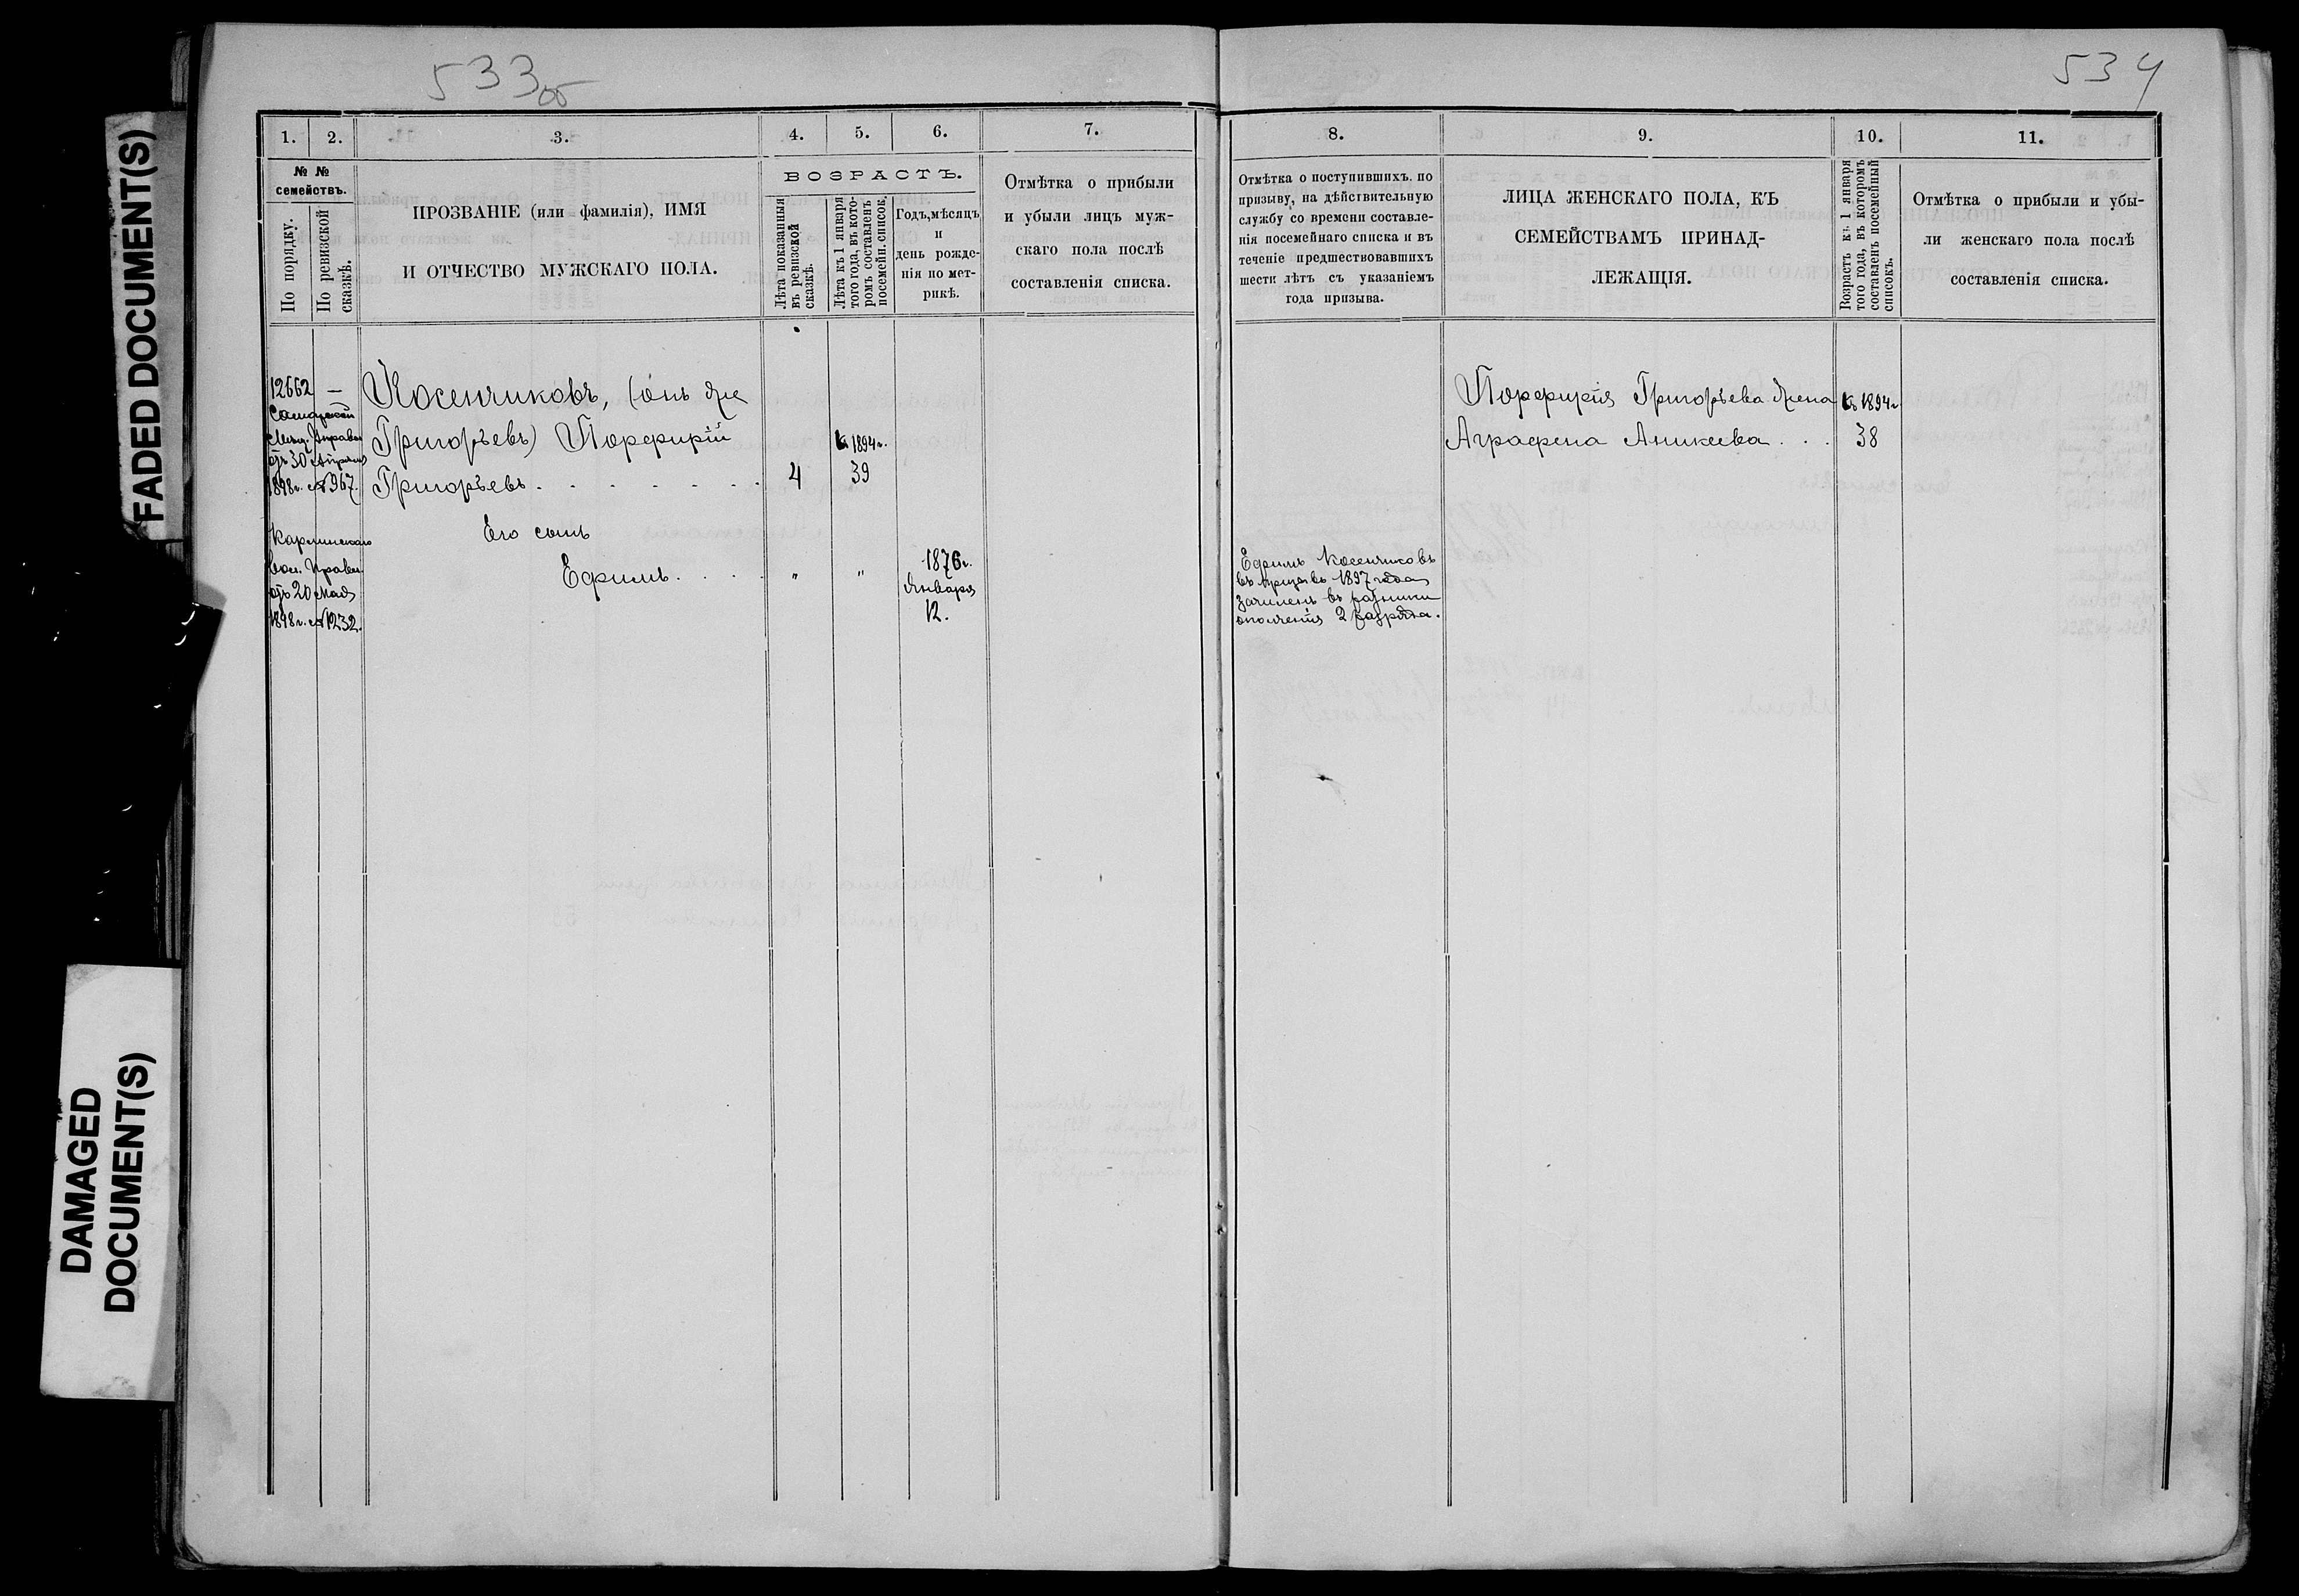 FADED DOCUMENT(S)
DAMAGED
DOCUMENT(S)
533об
1. 2. 3. 4. 5. 6. 7.
№ №
семействъ.
По порядку.
По ревизской
сказкѣ.
ПРОЗВАНІЕ (или фамилія), ИМЯ
И ОТЧЕСТВО МУЖСКАГО ПОЛА.
ВОЗРАСТЪ.
Лѣта показанныя
въ ревизской
сказкѣ.
Лѣта къ 1 января
того года, въ кото-
ромъ составленъ
посемейн. список.
Годъ, мѣсяцъ
и
день рожде-
нія по мет-
рикѣ.
Отмѣтка о прибыли
и убыли лицъ муж-
скаго пола послѣ
составленія списка.
12662 —
Самарской
Мѣщ. Управы
отъ 30 Апрѣля
1898г. №967.
Косенчиковъ, (онъ же
Григорьевъ) Порфирій
Григорьевъ . . . . . . . 4
къ 1894г.
39
Карлинскаго
Вол. Правл.
отъ 20 Мая
1898г. №1232.
Его сынъ
Ефимъ . . . . " "
1876г.
Января
12.
534
8. 9. 10. 11.
Отмѣтка о поступившихъ. по
призыву, на дѣйствительную
службу со времени составле-
нія посемейнаго списка и въ
теченіе предшествовавшихъ
шести лѣтъ съ указаніемъ
года призыва.
ЛИЦА ЖЕНСКАГО ПОЛА, КЪ
СЕМЕЙСТВАМЪ ПРИНАД-
ЛЕЖАЩІЯ.
Возрастъ къ 1 января
того года, въ которомъ
составленъ посемейный
списокъ.
Отмѣтка о прибыли и убы-
ли женскаго пола послѣ
составленія списка.
Порфирія Григорьева жена къ 1894г
Аграфена Аникеева . . . 38
Ефимъ Косенчиковъ
въ призывъ 1897 года
зачисленъ въ ратники
ополченія 2 разряда.